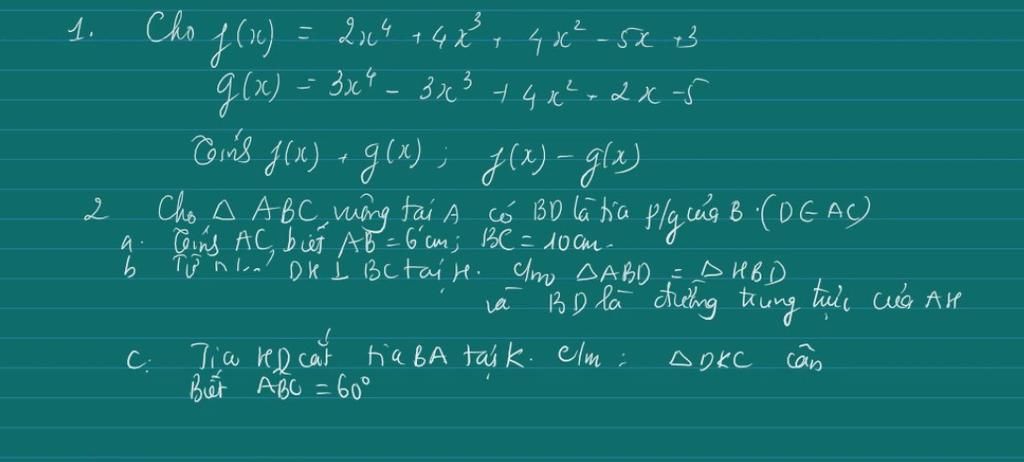 1. Cho f(x) = 2x⁴ + 4x³ + 4x² - 5x + 3
g(x) = 3x⁴ - 3x³ + 4x² + 2x - 5
Tính f(x) + g(x); f(x) - g(x)
2 Cho △ ABC vuông tại A có BD là tia p/g của B. (D ∈ AC)
a. Tính AC, biết AB = 6 cm; BC = 10 cm.
b Từ DH ⊥ BC tại H. c/m △ABD = △HBD
và BD là đường trung trực của AH
c. Tia HD cắt tia BA tại K. c/m: △DKC cân
Biết ABC = 60°